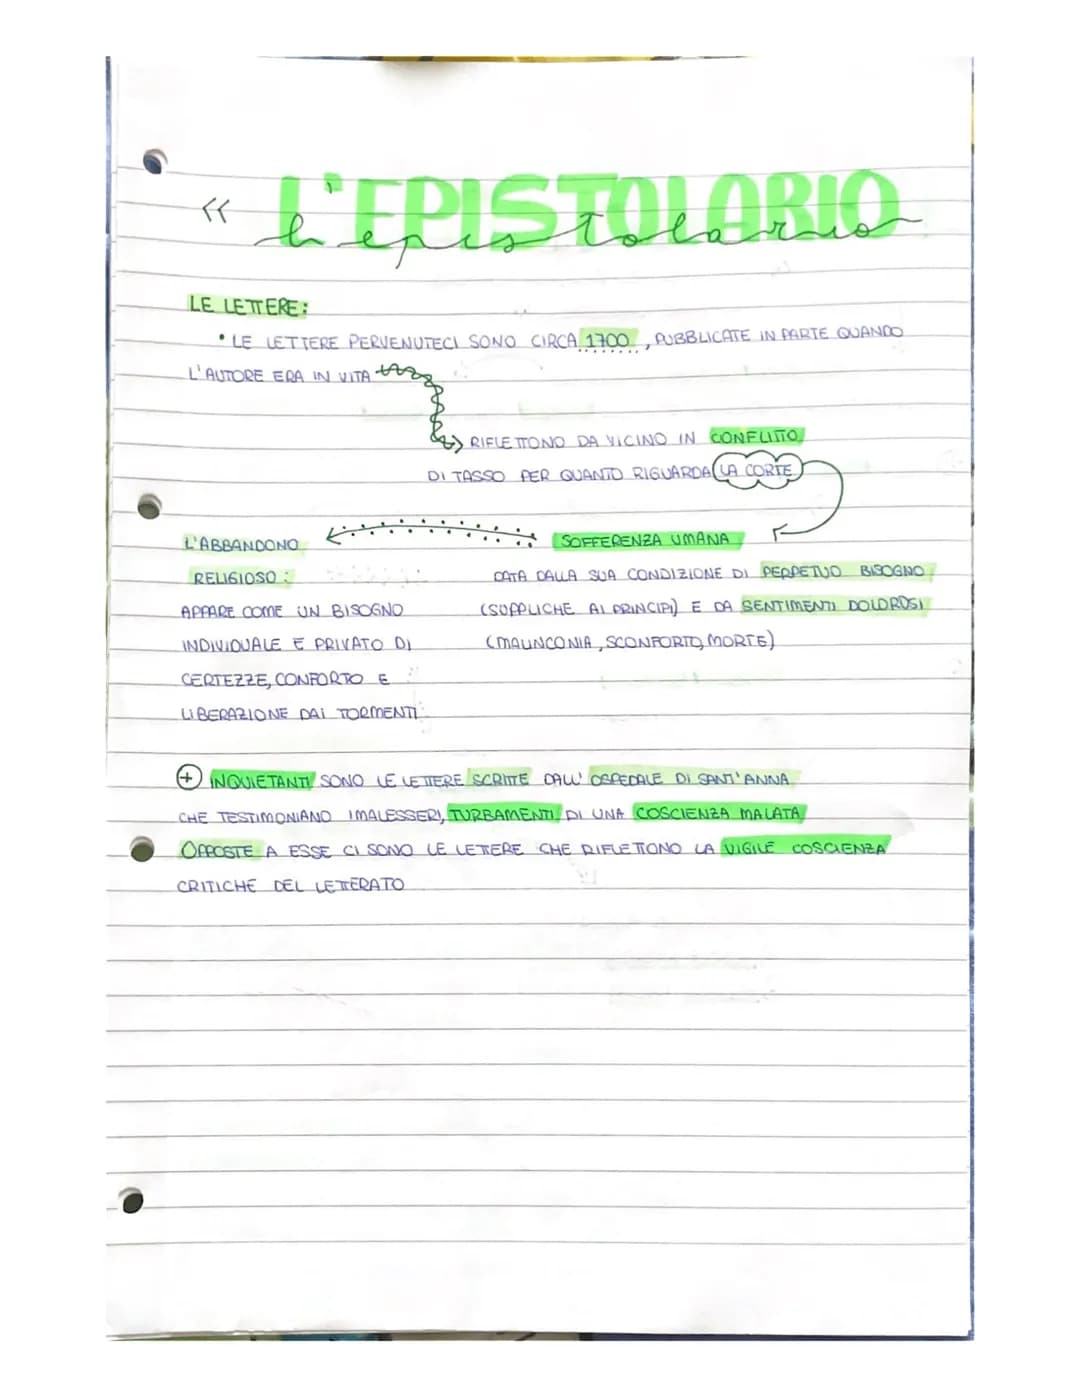 « L'EPISTOLARIO
L'epistolario
LE LETTERE:
• LE LETTERE PERVENUTECI SONO CIRCA 1700, PUBBLICATE IN PARTE QUANDO
L'AUTORE ERA IN VITA
RIFLETTONO DA VICINO IN CONFLITTO
DI TASSO PER QUANTO RIGUARDA LA CORTE
L'ABBANDONO
RELIGIOSO:
APPARE COME UN BISOGNO
INDIVIDUALE E PRIVATO DI
CERTEZZE, CONFORTO E
LIBERAZIONE DAI TORMENTI
SOFFERENZA UMANA
DATA DALLA SUA CONDIZIONE DI PERPETUO BISOGNO
(SUPPLICHE AI PRINCIPI) E DA SENTIMENTI DOLOROSI
(MALINCONIA, SCONFORTO, MORTE)
+ INQUIETANTI SONO LE LETTERE SCRITTE DALL' OSPEDALE DI SANT'ANNA
CHE TESTIMONIANO I MALESSERI, TURBAMENTI DI UNA COSCIENZA MALATA
OPPOSTE A ESSE CI SONO LE LETTERE CHE RIFLETTONO LA VIGILE COSCIENZA
CRITICHE DEL LETTERATO